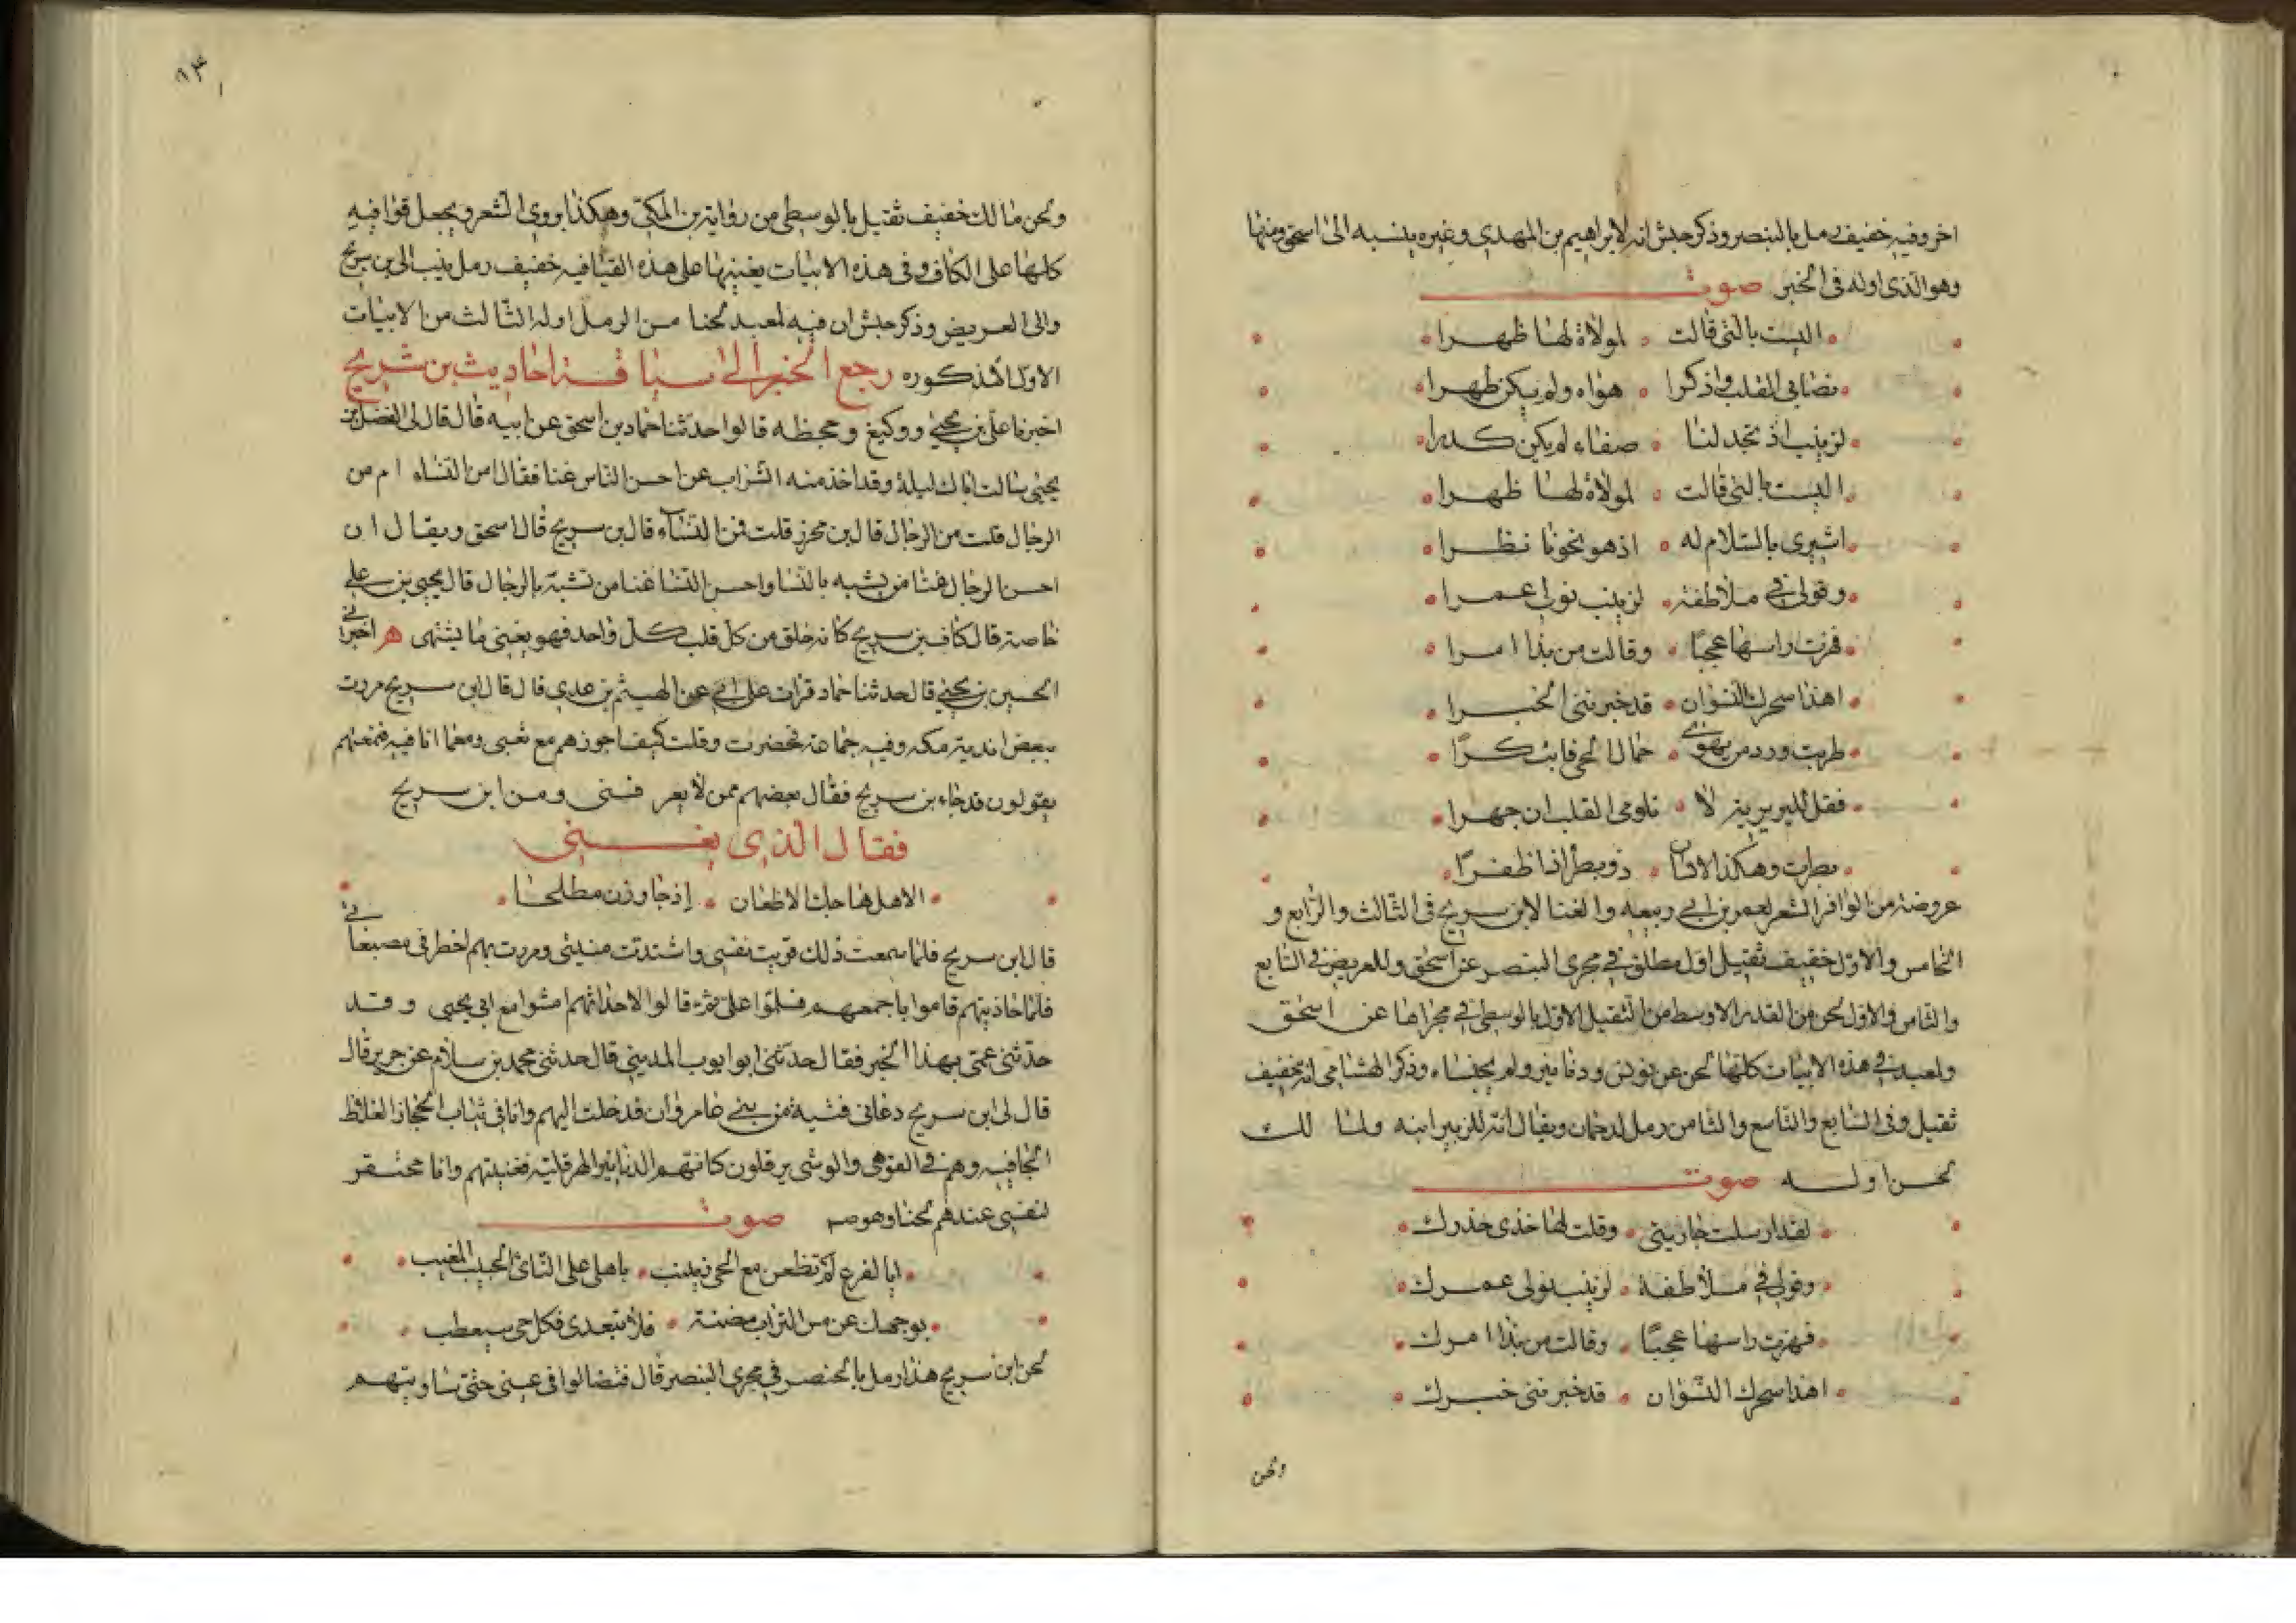 اخر وفيه خفيف رمل بالبنصر وذكر حبش انه لابراهيم بن المهدي وغيره ينسبه الى اسحق ومنها
وهو الذي اوله في الخبر صوت
اليست بالتي قالت لمولاة لها ظهرا
تصابى القلب واذكرا هواه ولم يكن ظهرا
لزينب اذ تجد لنا صفاء لم يكن كدرا
اليست بالتي قالت لمولاة لها ظهرا
اشيري بالسلام له اذ هو نحونا نظرا
وقولي في ملاطفة لزينب نولي عمرا
فهزت راسها عجبا وقالت من بذا امرا
اهذا سحرك النسوان قد خبرنني الخبرا
طربت ورد من يهوى جمال الحي فابتكرا
فقل للبربرية لا تلومي القلب ان جهرا
بطرت وهكذا الانسان ذو بطر اذا ظفرا
عروضه من الوافر الشعر لعمر بن ابي ربيعه والغنا لابن سريج في الثالث والرابع و
الخامس والاول خفيف ثقيل اول مطلق في مجرى البنصر عن اسحق وللغريض في السابع
والثامن والاول لحن من القدر الاوسط من الثقيل الاول بالوسطى في مجراها عن اسحق
ولمعبد في هذه الابيات كلها لحن عن يونس ودنانير ولم يجنساه وذكر الهشامي انه خفيف
ثقيل وفي السابع والتاسع والثامن رمل لدحمان ويقال انه للزبير ابنه ولمالك
لحن اوله صوت
لقد ارسلت جاريتي وقلت لها خذي حذرك
وقولي في ملاطفة لزينب نولي عمرك
فهزت راسها عجبا وقالت من بذا امرك
اهذا سحرك النسوان قد خبرنني خبرك
ولحن
٨٣
ولحن مالك خفيف ثقيل بالوسطى من رواية بن المكي وهكذا يروى الشعر ويجعل قوافيه
كلها على الكاف وفي هذه الابيات بعينها على هذه القافيه خفيف رمل ينسب الى بن سريج
والى الغريض وذكر حبش ان فيه لمعبد لحنا من الرمل اوله الثالث من الابيات
الاول المذكوره رجع الخبر الى سياقة احاديث بن سريج
اخبرنا علي بن يحيى ووكيع وجحظه قالوا حدثنا حماد بن اسحق عن ابيه قال قال لي الفضل بن
يحيى سالت اباك ليلة وقد اخذ منه الشراب عن احسن الناس غنا فقال امن النساء ام من
الرجال قلت من الرجال قال بن محرز قلت فمن النساء قال بن سريج قال اسحق ويقال ان
احسن الرجال غنا من يشبه بالنسا واحسن النسا غنا من تشبه بالرجال قال يحيى بن علي
خاصة قال كان بن سريج كانه خلق من كل قلب كل واحد فهو يغني ما يشتهى اخبرني
الحسين بن يحيى قال حدثنا حماد قرات على ابي عن الهيثم بن عدي قال قال ابن سريج مررت
ببعض اندية مكه وفيه جماعة فحضرت وقلت كيف اجوزهم مع تعبي ومما انا فيه فسمعتهم
يقولون قد جاء بن سريج فقال بعضهم ممن لا يعرفني ومن ابن سريج
فقال الذي يغني
الا هل هاجك الاظعان إذ جاوزن مطلحا
قال ابن سريج فلما سمعت ذلك قويت نفسي واشتدت منيتي ومررت بهم اخطر في مصبغاتي
فلما حاذيتهم قاموا باجمعهم فسلموا علي ثم قالوا لاحداثهم امشوا مع ابي يحيى وقد
حدثني عمي بهذا الخبر فقال حدثني ابو ايوب المديني قال حدثني محمد بن سلام عن جرير قال
قال لي ابن سريج دعاني فتية من بني مروان فدخلت اليهم وانا في ثياب الحجاز الغلاظ
الجافيه وهم في القوهي والوشى يرفلون كانهم الدنانير الهرقلية فغنيتهم وانا محتقر
لنفسي عندهم لحنا وهو صوت
ابا لفرع لم تظعن مع الحي زينب باهلي على النائ الحبيب المغيب
بوجهك عن مس التراب مضنة فلا تبعدي فكل حي سيعطب
لحن ابن سريج هذا رمل بالخنصر في مجرى البنصر قال فتضالوا في عيني حتى ساويتهم